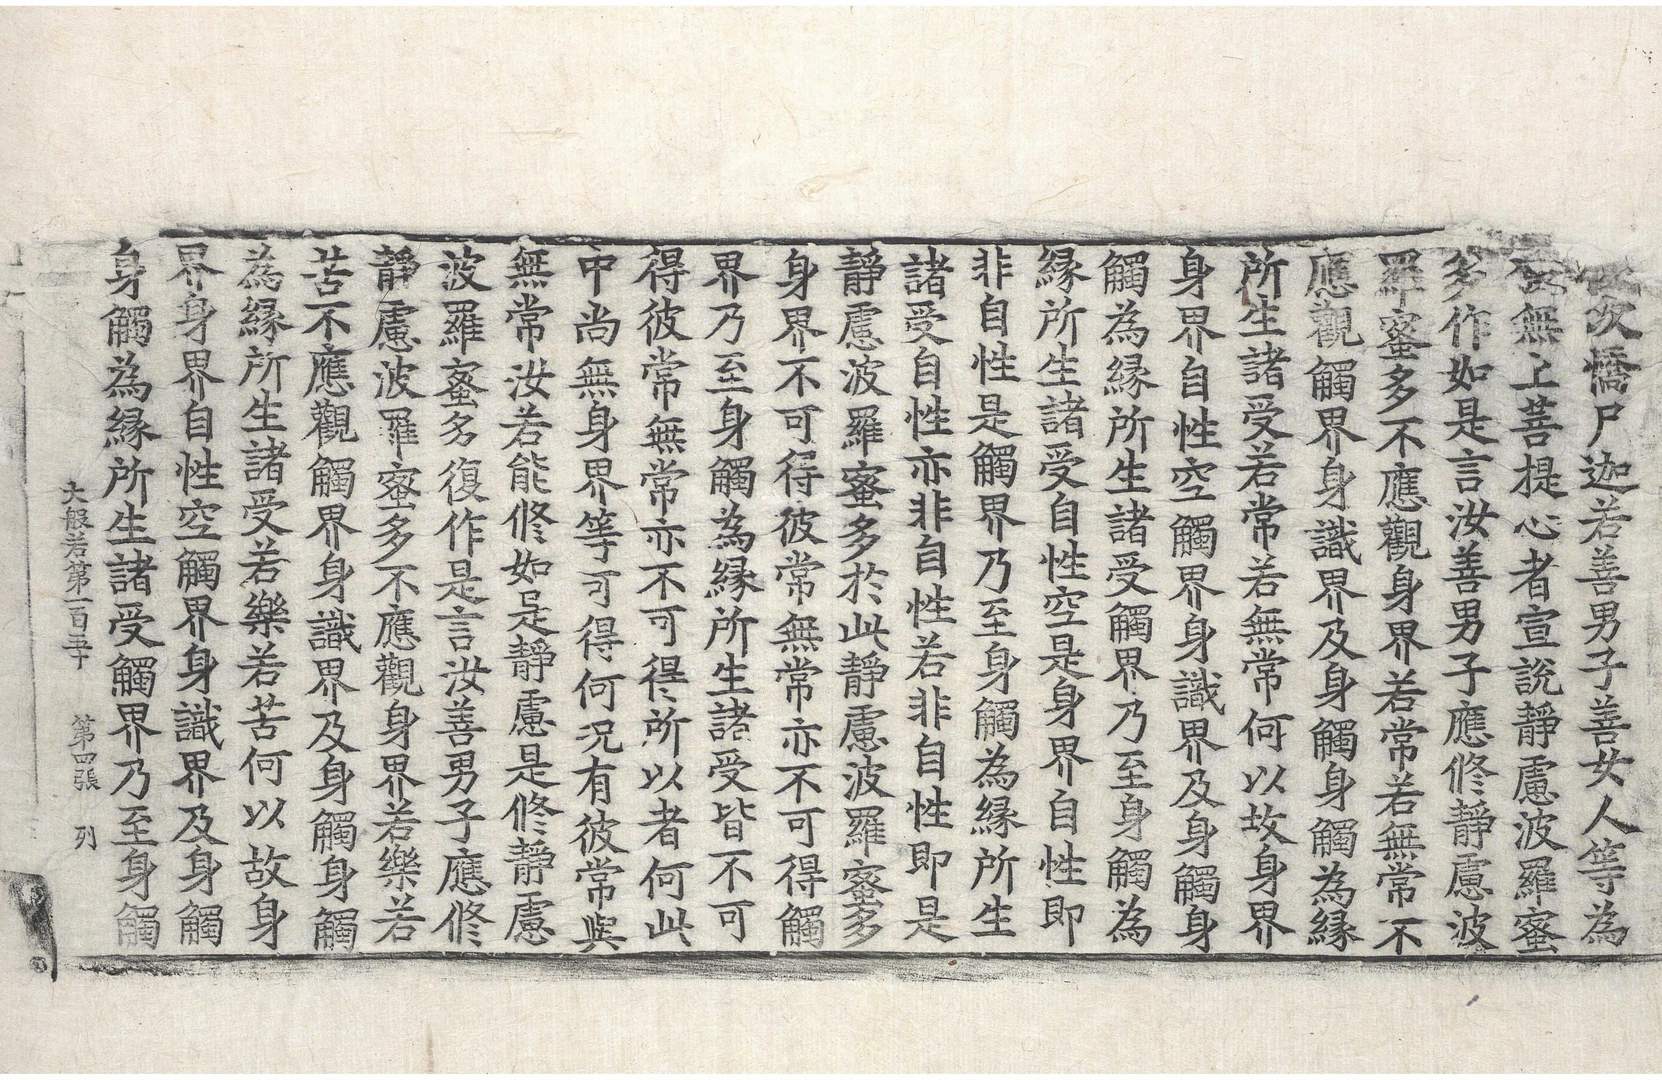 復次憍尸迦若善男子善女人等為
發無上菩提心者宣說靜慮波羅蜜
多作如是言汝善男子應修靜慮波
羅蜜多不應觀身界若常若無常不
應觀觸界身識界及身觸身觸為緣
所生諸受若常若無常何以故身界
身界自性空觸界身識界及身觸身
觸為緣所生諸受觸界乃至身觸為
緣所生諸受自性空是身界自性即
非自性是觸界乃至身觸為緣所生
諸受自性亦非自性若非自性即是
靜慮波羅蜜多於此靜慮波羅蜜多
身界不可得彼常無常亦不可得觸
界乃至身觸為緣所生諸受皆不可
得彼常無常亦不可得所以者何此
中尚無身界等可得何況有彼常與
無常汝若能修如是靜慮是修靜慮
波羅蜜多復作是言汝善男子應修
靜慮波羅蜜多不應觀身界若樂若
苦不應觀觸界身識界及身觸身觸
為緣所生諸受若樂若苦何以故身
界身界自性空觸界身識界及身觸
身觸為緣所生諸受觸界乃至身觸
大般若第一百五十 第四張 列